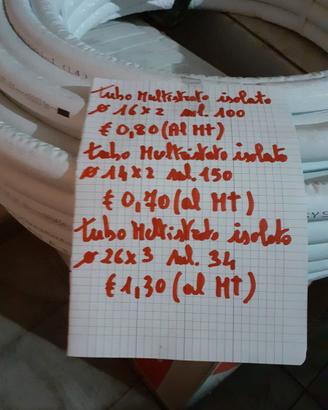 tubo Multistrato isolato
ø 16x2 ml. 100
€ 0,80 (Al Mt)
tubo Multistrato isolato
ø 14x2 ml. 150
€ 0,70 (al Mt)
tubo Multistrato isolato
ø 26x3 ml. 34
€ 1,30 (al Mt)